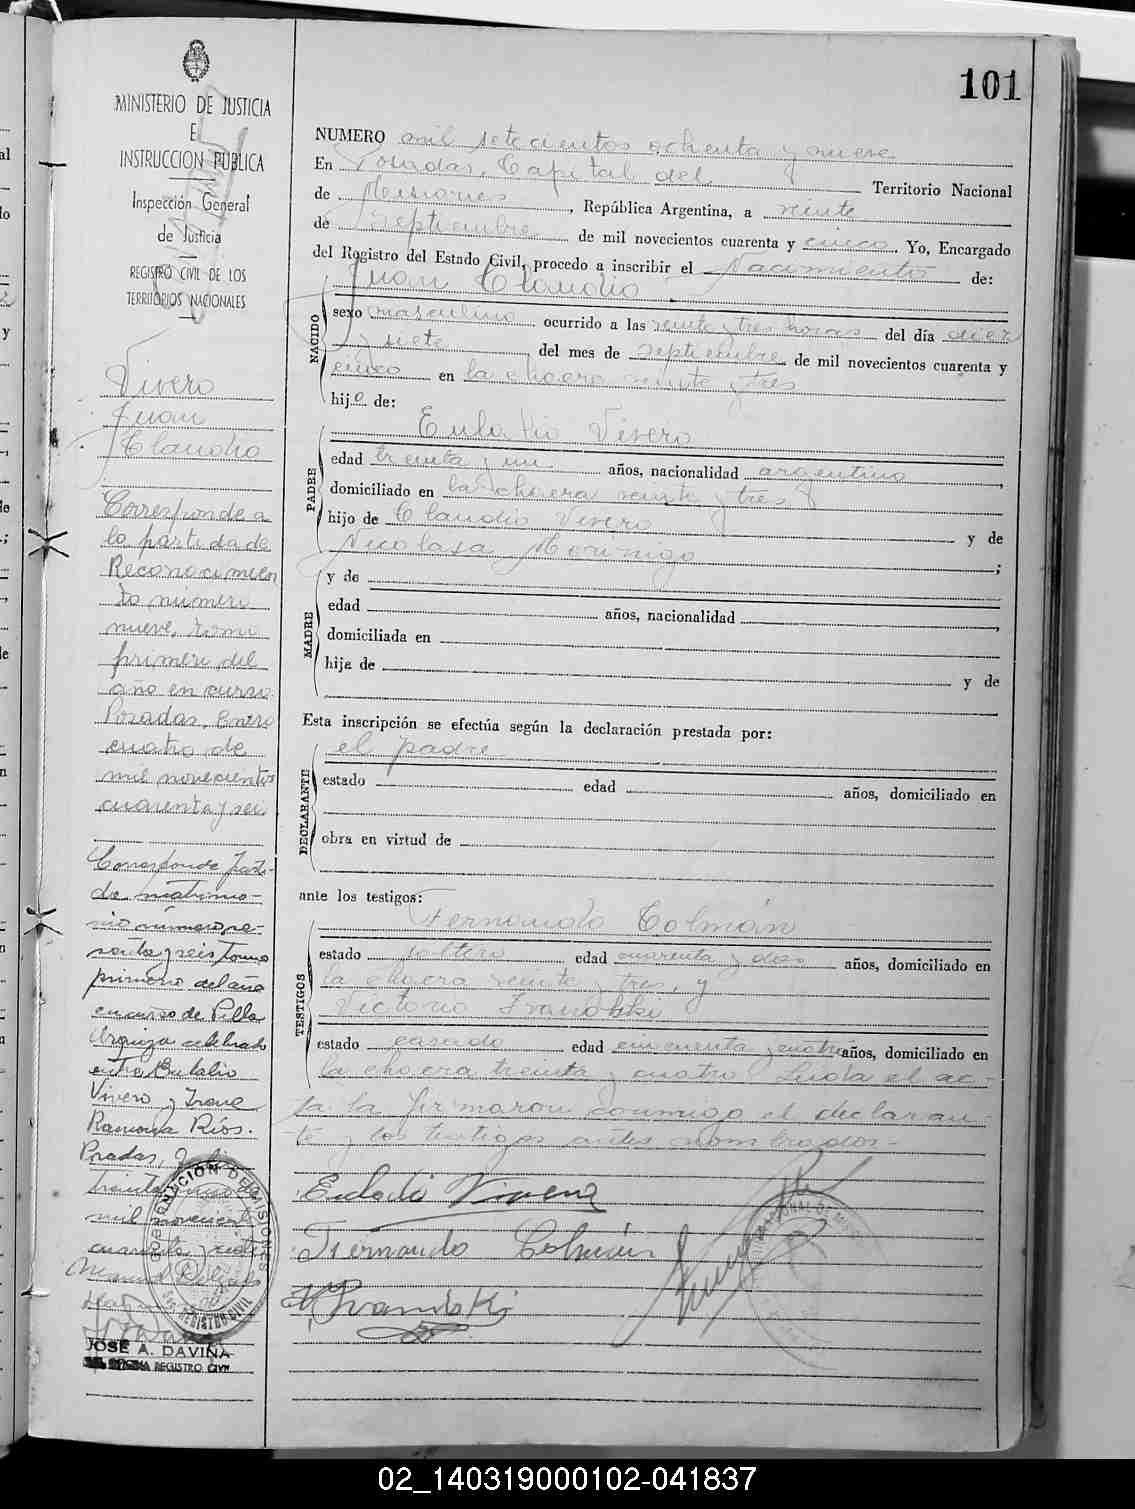 101
MINISTERIO DE JUSTICIA
E
INSTRUCCION PUBLICA
Inspección General
de Justicia
REGISTRO CIVIL DE LOS
TERRITORIOS NACIONALES
Vivero
Juan
Claudio
Corresponde a
la partida de
Reconocimien
to numero
nueve, tomo
primero del
año en curso.
Posadas, Enero
cuatro de
mil novecientos
cuarenta y seis
Corresponde Parti-
da matrimo-
nio número se-
senta y seis tomo
primero del año
en curso de Villa
Urquiza celebrado
entre Eulalio
Vivero y Irene
Ramona Ríos.
Posadas, Julio
treinta
mil novecientos
cuarenta y siete
JOSE A. DAVIÑA
REGISTRO CIVIL
NUMERO mil setecientos ochenta y nueve
En Posadas, Capital del Territorio Nacional
de Misiones, República Argentina, a veinte
de Septiembre de mil novecientos cuarenta y cinco Yo, Encargado
del Registro del Estado Civil, procedo a inscribir el Nacimiento de:
Juan Claudio
NACIDO
sexo masculino ocurrido a las veinte y tres horas del día diez
y siete del mes de septiembre de mil novecientos cuarenta y
cinco en la chacra veinte y tres
hijo de:
Eulalio Vivero
PADRE
edad treinta y un años, nacionalidad argentino,
domiciliado en la chacra veinte y tres
hijo de Claudio Vivero y de
Nicolasa Morinigo;
MADRE
y de
edad años, nacionalidad
domiciliada en
hija de y de
Esta inscripción se efectúa según la declaración prestada por:
el padre
DECLARANTE
estado edad años, domiciliado en
obra en virtud de
ante los testigos:
Fernando Colmán
TESTIGOS
estado soltero edad cuarenta y dos años, domiciliado en
la chacra veinte y tres, y
Victorio Ivanoski
estado casado edad cincuenta y cuatro años, domiciliado en
la chacra treinta y cuatro. Leída el ac-
ta la firmaron conmigo el declaran-
te y los testigos antes nombrados-
Eulalio Vivero
Fernando Colmán
V. Ivanoski
02_140319000102-041837